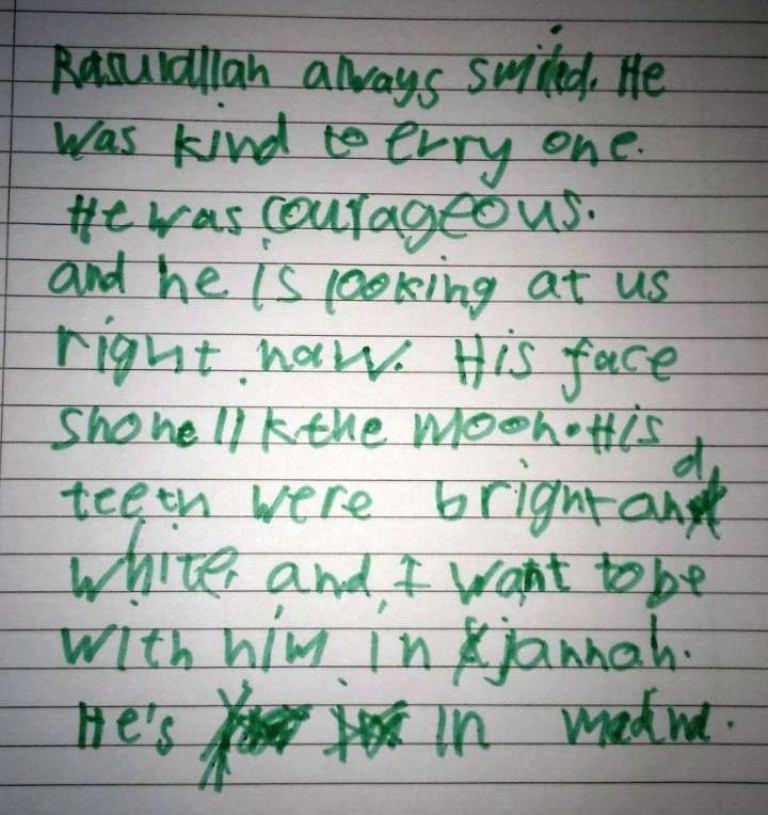 Rasulallah always smiled. He
was kind to evry one.
He was courageous.
and he is looking at us
right now. His face
shone lik the moon. His
teeth were bright and
white, and I want to be
with him in jannah.
He's in madina.